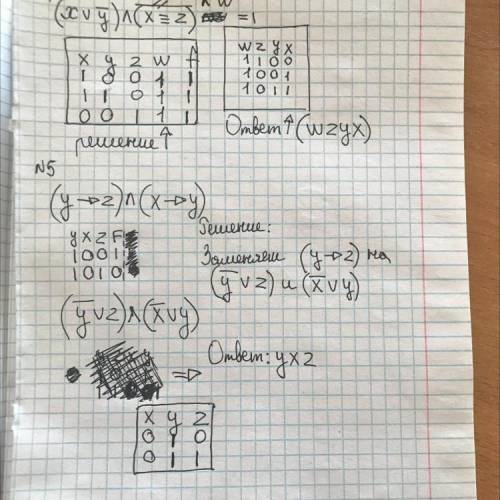 (x∨y̅)∧(x≡z) ∧ w =1
x y z w f
1 0 0 1 1
1 1 0 1 1
0 0 1 1 1
решение↑
w z y x
1 1 0 0
1 0 0 1
1 0 1 1
Ответ↑(wzyx)
N5
(y→z)∧(x→y)
y x z F
1 0 0 1
1 0 1 0
Решение:
Заменяем (y→z) на
(y̅∨z) и (x̅∨y)
(y̅∨z)∧(x̅∨y)
⇒ Ответ: yxz
x y z
0 1 0
0 1 1